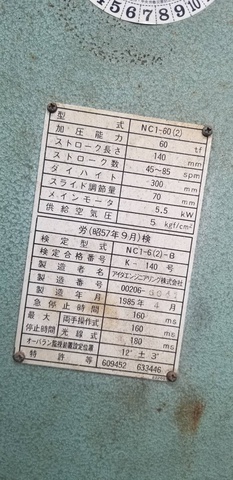 4 5 6 7 8 9 10
型式 NC1-60(2)
加圧能力 60 tf
ストローク長さ 140 mm
ストローク数 45~85 spm
ダイハイト 300 mm
スライド調節量 70 mm
メインモータ 5.5 kW
供給空気圧 5 kgf/cm²
労(昭57年9月)検
検定型式 NC1-6(2)-B
検定合格番号 K-140号
製造者名 アイダエンジニアリング株式会社
製造番号 00206-
製造年月 1985年 月
急停止時間 160 ms
最大停止時間 両手操作式 160 ms
光線式 180 ms
オーバラン監視装置設定位置 12°±3°
特許等 609452 633446